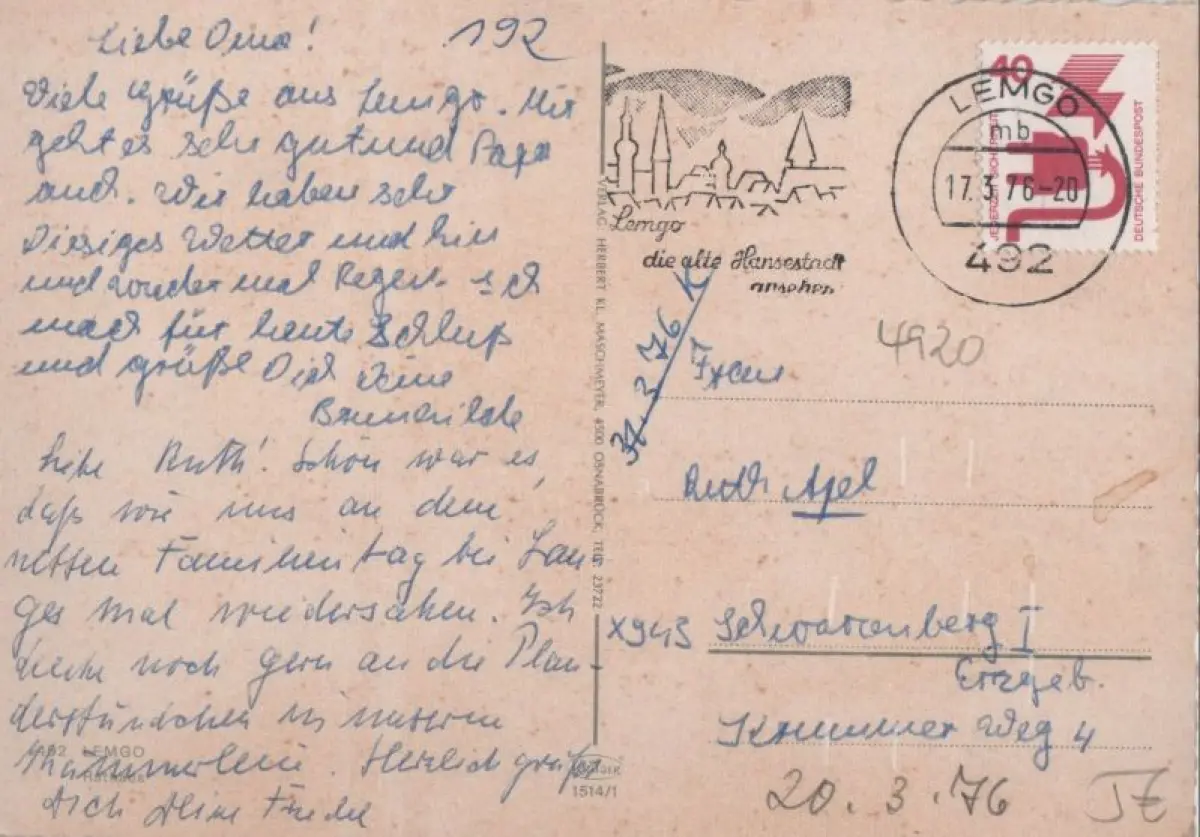 192
Liebe Oma!
Viele Grüße aus Lemgo. Mir
geht es sehr gut und Papa
auch. Wir haben sehr
diesiges Wetter und hin
und wieder mal Regen. Ich
mach für heute Schluß
und grüße Dich Deine
Liebe Ruth! Schön war es,
daß wir uns an dem
netten Familientag bei Lan-
ges mal wiedersahen. Ich
denke noch gern an die Plau-
derstündchen in unserem
Kämmerlein. Herzlich grüßt
Dich Deine
492 LEMGO
1514/1
VERLAG HERBERT KL. MASCHMEYER, 4500 OSNABRÜCK, TEL. 23722
Lemgo
die alte Hansestadt
ansehen
40
JEDERZEIT SICHERHEIT
DEUTSCHE BUNDESPOST
LEMGO
mb
17.3.76-20
492
4920
3.76 K
Frau
Ruth Apel
X943 Schwarzenberg I
Erzgeb.
Krummer Weg 4
20.3.76